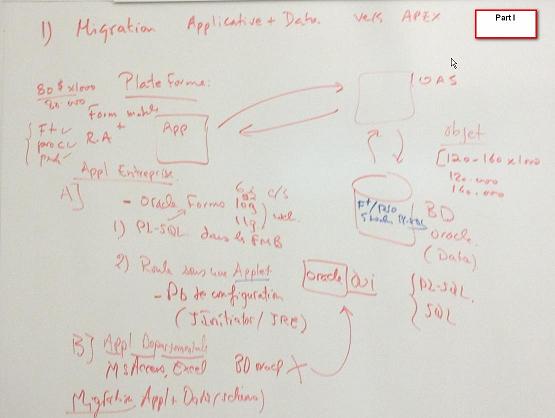 Part I
1) Migration Applicative + Data vers APEX
80 $ x 1000
80.000
Plate Forme:
Form mobile +
R.A
F+ ✓
proc ✓
App
OAS
objet
[120-160 x 1000
120.000
160.000
Appl Entreprise
A]
- Oracle Forms
c/s
10g
11g
web
1) PL-SQL dans le FMB
F+/
BD
oracle
(Data)
2) Roule sous une Applet
- Pb de configuration
(JInitiator / JRE)
oracle oui
PL-SQL
SQL
B] Appl Departementale
MS Access, Excel BD oracle X
Migration Appl + Data (schema)